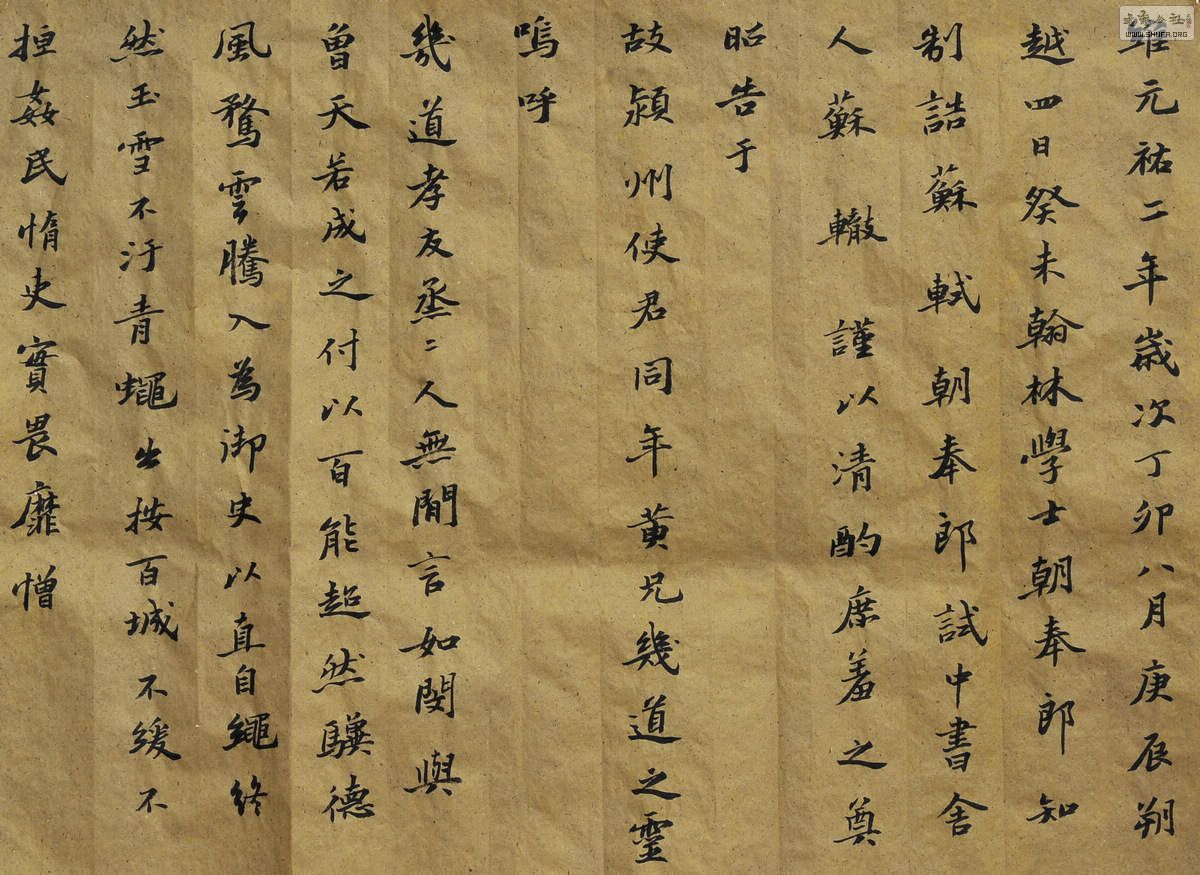 維元祐二年歲次丁卯八月庚辰朔
越四日癸未翰林學士朝奉郎知
制誥蘇軾朝奉郎試中書舍
人蘇轍謹以清酌庶羞之奠
昭告于
故潁州使君同年黃兄幾道之靈
嗚呼
幾道孝友烝〻人無閒言如閔與
曾天若成之付以百能超然驥德
風騖雲騰入為御史以直自繩終
然玉雪不汙青蠅出按百城不緩不
拒姦民惰吏實畏靡憎
WWW.SHUFA.ORG